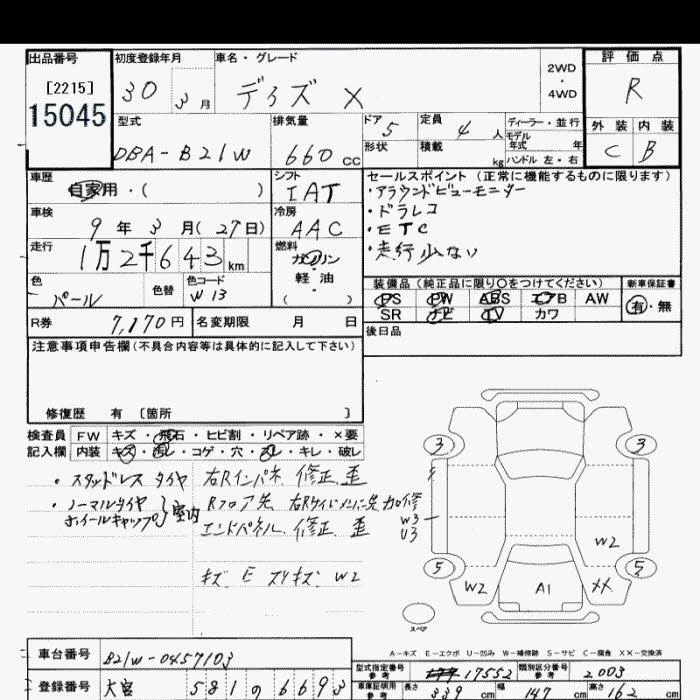 出品番号 初度登録年月 車名・グレード 評価点
[2215] 30 3月 デイズ X 2WD・4WD R
15045
型式 排気量 ドア 5 定員 4人 ディーラー・並行 外装 内装
DBA-B21W 660cc 形状 積載 kg モデル年式 年 ハンドル 左・右 C B
車歴 シフト セールスポイント (正常に機能するものに限ります)
自家用・( ) IAT ・アラウンドビューモニター
車検 冷房 ・ドラレコ
9年3月(27日) AAC ・ETC
走行 燃料 ・走行少ない
1万2千643km ガソリン
軽・油
( )
色 色替 色コード 装備品 (純正品に限り○をつけてください) 新車保証書
パール W13 PS PW ABS エアB AW 有・無
SR ナビ TV カワ
R券 7,170円 名変期限 月 日 後日品
注意事項申告欄(不具合内容等は具体的に記入して下さい)
修復歴 有 [箇所 ]
検査員 FW キズ・飛石・ヒビ割・リペア跡・×要
記入欄 内装 キズ・汚レ・コゲ・穴・カレ・キレ・破レ
・スタッドレスタイヤ 右Rインパネ 修正 歪
・ノーマルタイヤ ホイールキャップ 室内 Rフロア先 右Rサイドメンバー先 加修
エンドパネル 修正 歪
キズ E スリキズ W2
3 3
W3
U3
W2
5 5
W2 A1 XX
スペア
A-キズ E-エクボ U-凹み W-補修跡 S-サビ C-腐食 XX-交換済
車台番号 B21W-0457103
型式指定番号 参考 17552 類別区分番号 参考 2003
登録番号 大宮 581 の 6693
車庫証明用 参考 長さ 339 cm 幅 147 cm 高さ 162 cm